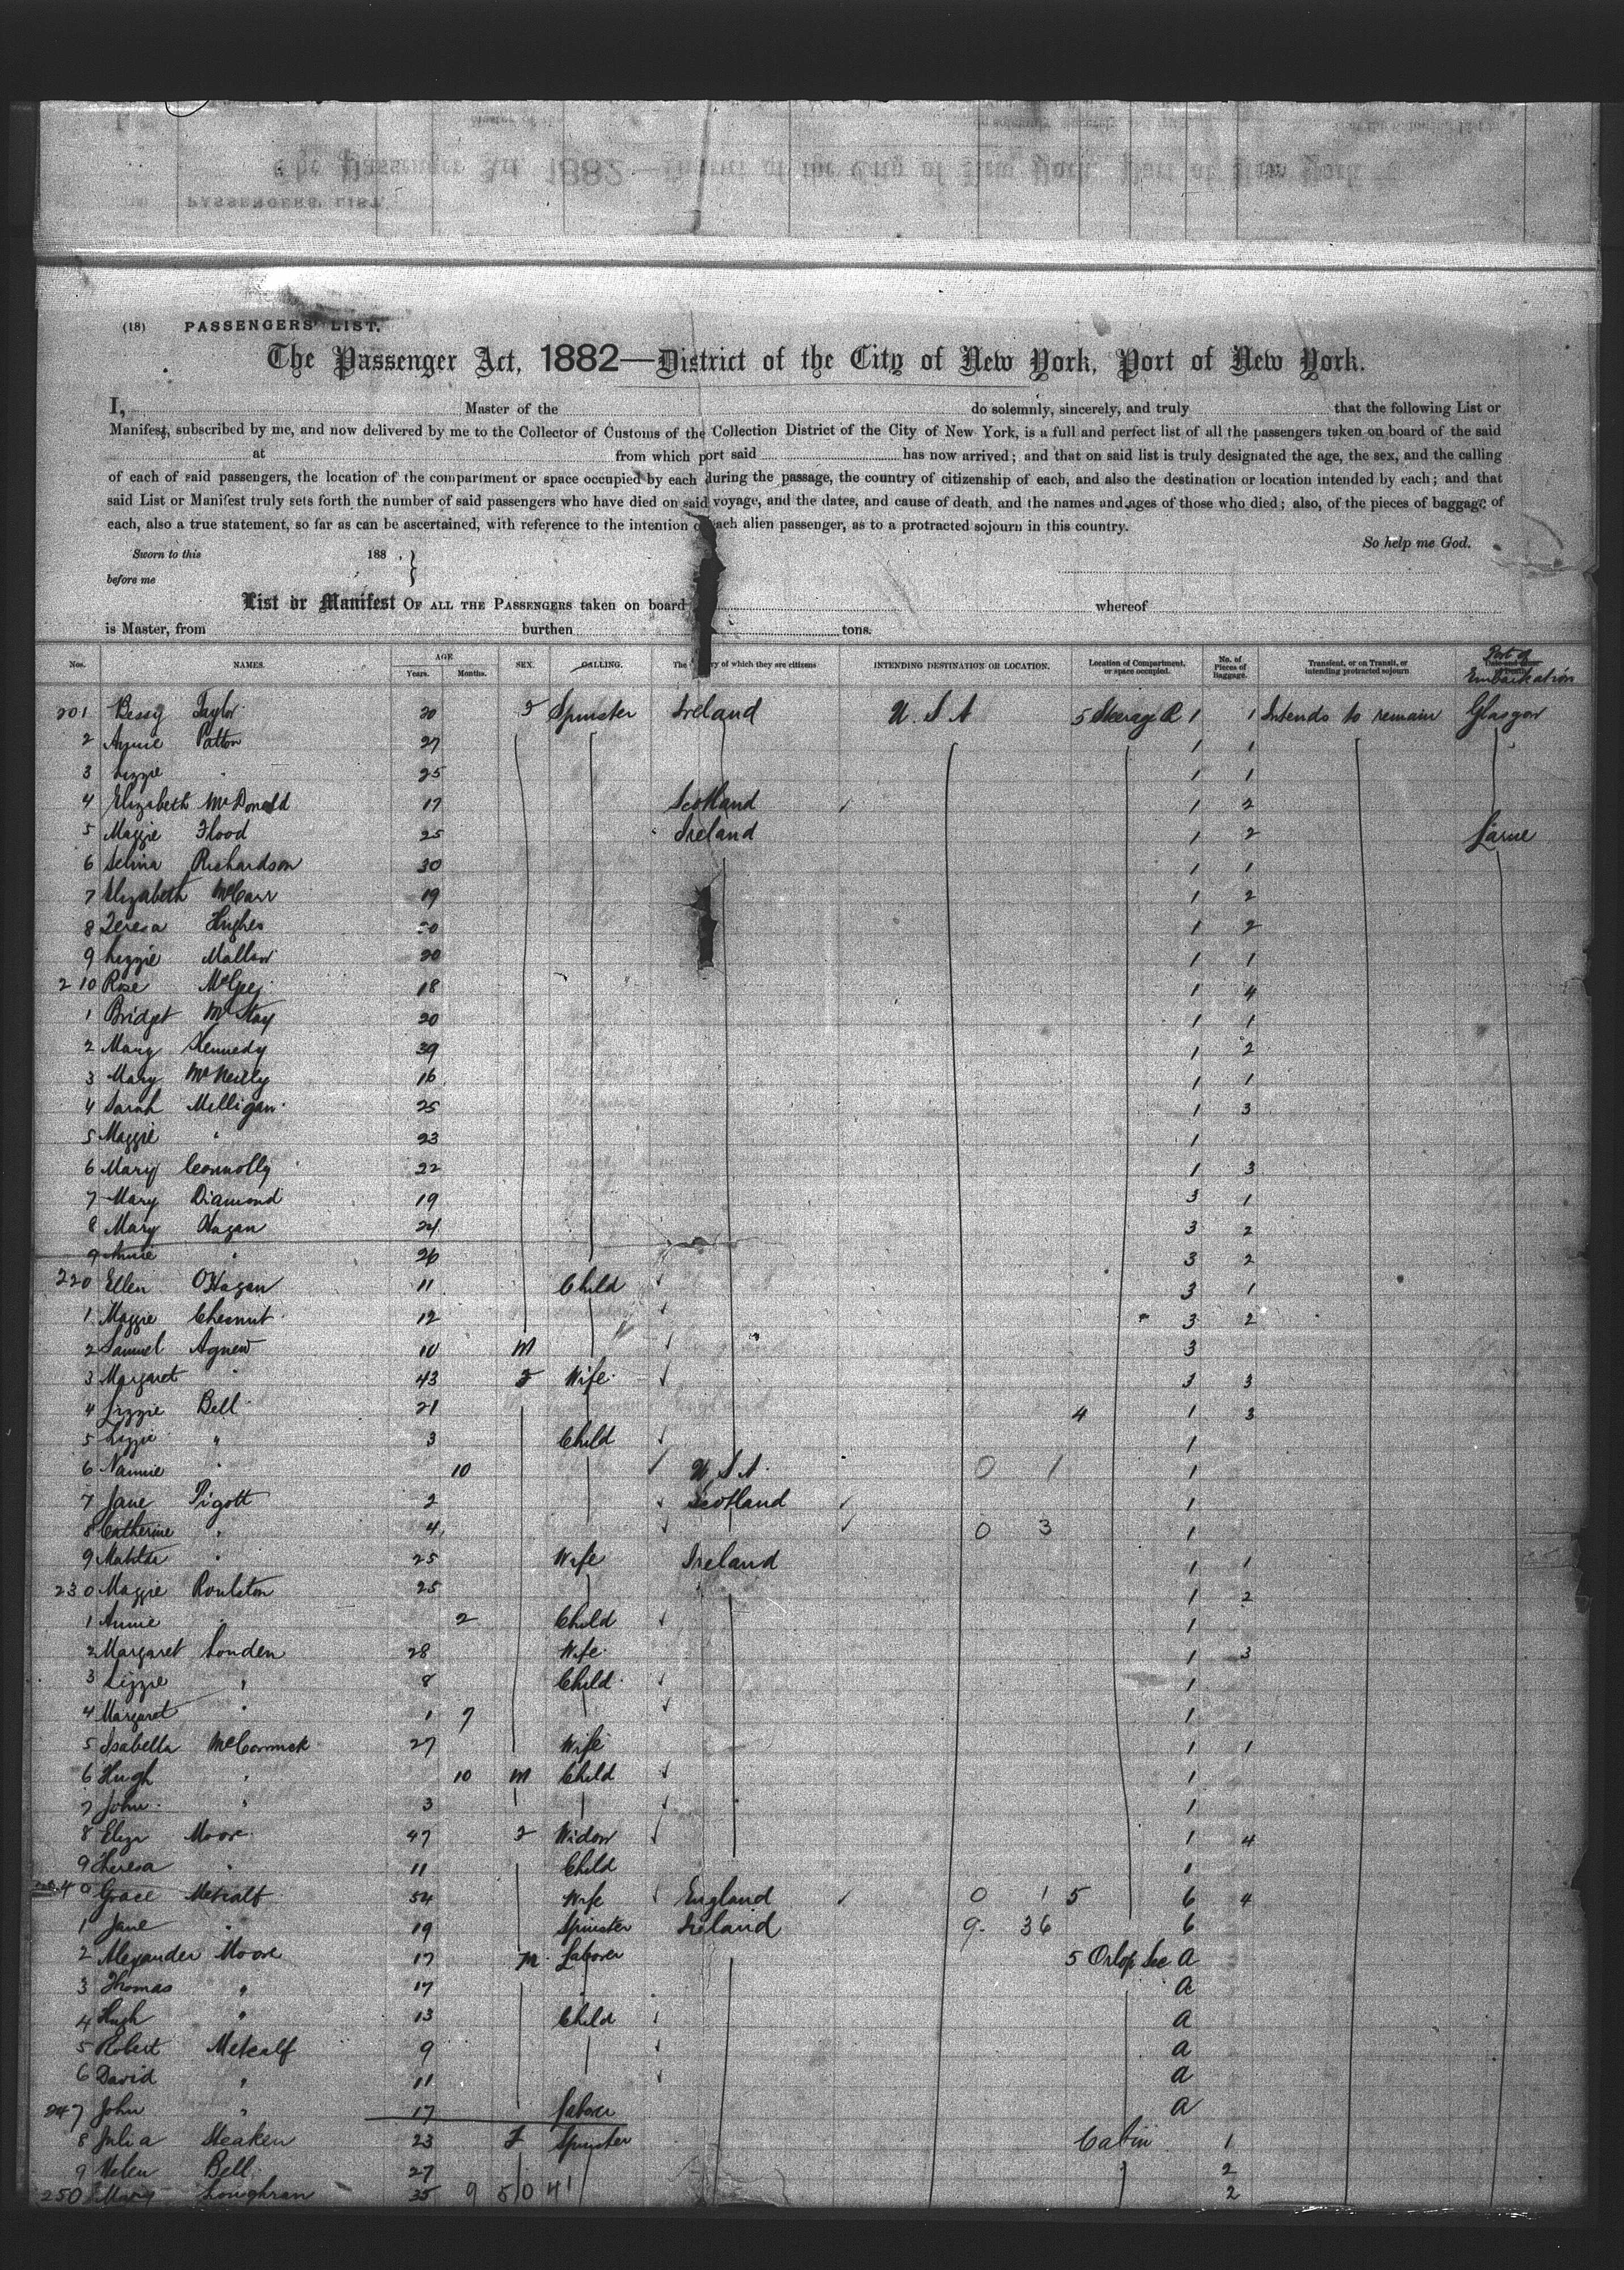 (18) PASSENGERS' LIST.
The Passenger Act, 1882—District of the City of New York, Port of New York.
I, Master of the do solemnly, sincerely, and truly that the following List or
Manifest, subscribed by me, and now delivered by me to the Collector of Customs of the Collection District of the City of New York, is a full and perfect list of all the passengers taken on board of the said
at from which port said has now arrived; and that on said list is truly designated the age, the sex, and the calling
of each of said passengers, the location of the compartment or space occupied by each during the passage, the country of citizenship of each, and also the destination or location intended by each; and that
said List or Manifest truly sets forth the number of said passengers who have died on said voyage, and the dates, and cause of death, and the names and ages of those who died; also, of the pieces of baggage of
each, also a true statement, so far as can be ascertained, with reference to the intention of each alien passenger, as to a protracted sojourn in this country.
So help me God.
Sworn to this 188 .
before me
List or Manifest OF ALL THE PASSENGERS taken on board whereof
is Master, from burthen tons.
Nos. NAMES. AGE Years. Months. SEX. CALLING. The ry of which they are citizens INTENDING DESTINATION OR LOCATION. Location of Compartment, or space occupied. No. of Pieces of Baggage. Transient, or on Transit, or intending protracted sojourn Port of Embarkation
201 Bessy Taylor 20 F Spinster Ireland U.S.A 5 Steerage R 1 1 Intends to remain Glasgow
2 Annie Patton 27 1 1
3 Lizzie " 25 1 1
4 Elizabeth McDonald 17 Scotland 1 2
5 Maggie Flood 25 Ireland 1 2 Larne
6 Selina Richardson 30 1 1
7 Elizabeth McCarr 19 1 2
8 Teresa Hughes 20 1 2
9 Lizzie Mallon 20 1 1
210 Rose McGee 18 1 4
1 Bridget McStay 20 1 1
2 Mary Kennedy 39 1 2
3 Mary McNeilly 16 1 1
4 Sarah Milligan 25 1 3
5 Maggie " 23 1
6 Mary Connolly 22 1 3
7 Mary Diamond 19 3 1
8 Mary Hagan 24 3 2
9 Annie " 26 3 2
220 Ellen O'Hagan 11 Child 3 1
1 Maggie Chesnut 12 3 2
2 Samuel Agnew 10 M 3
3 Margaret " 43 F Wife 3 3
4 Lizzie Bell 21 4 1 3
5 Lizzie " 3 Child 1
6 Nannie " 10 U.S.A. 0 1 1
7 Jane Pigott 2 Scotland 1
8 Catherine " 4 0 3 1
9 Matilda " 25 Wife Ireland 1 1
230 Maggie Roulston 25 1 2
1 Annie " 2 Child 1
2 Margaret Louden 28 Wife 1 3
3 Lizzie " 8 Child 1
4 Margaret " 1 7 1
5 Isabella McCormick 27 Wife 1 1
6 Hugh " 10 M Child 1
7 John " 3 1
8 Eliza Moore 47 F Widow 1 4
9 Theresa " 11 Child 1
240 Grace Metcalf 54 Wife England 0 1 5 6 4
1 Jane " 19 Spinster Ireland 9 36 6
2 Alexander Moore 17 M Laborer 5 Orlop Sec A
3 Thomas " 17 A
4 Hugh " 13 Child A
5 Robert Metcalf 9 A
6 David " 11 A
247 John " 17 Laborer A
8 Julia Heaken 23 F Spinster Cabin 1
9 Helen Bell 27 2
250 Mary Loughran 35 9 5 0 41 2